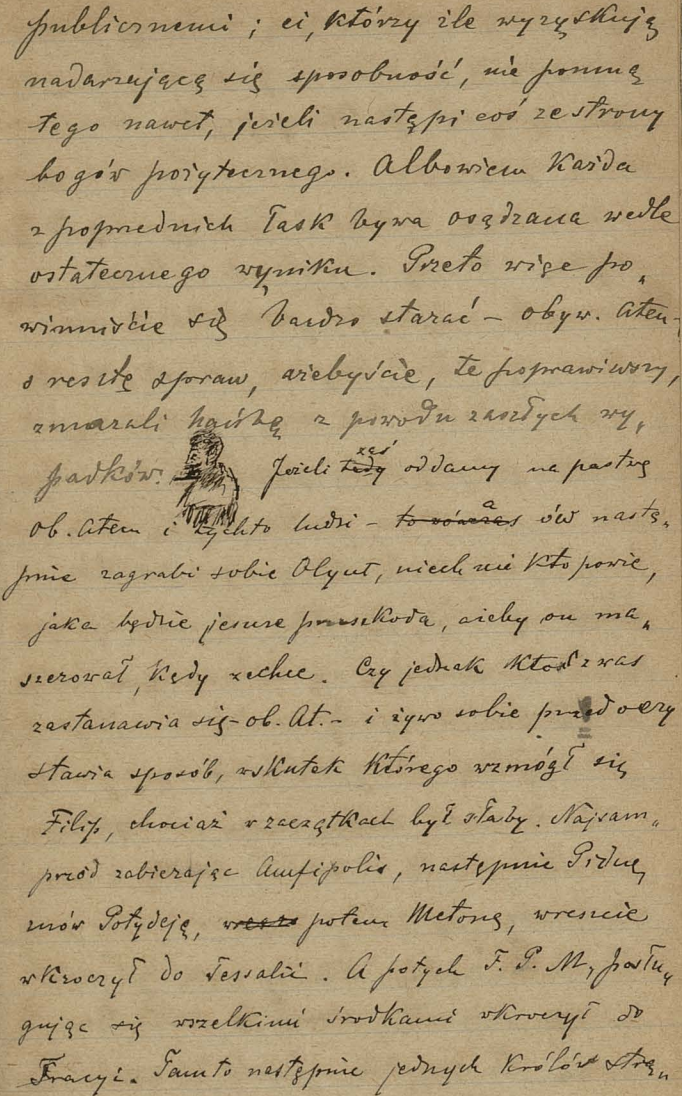 publicznemi ; ci, którzy źle wyzyskują
nadarzającą się sposobność, nie pomną
tego nawet, jeżeli nastąpi coś ze strony
bogów pożytecznego. Albowiem każda
z poprzednich łask bywa osądzana wedle
ostatecznego wyniku. Przeto więc po„
winniście się bardzo starać – obyw. Aten-
o resztę spraw, ażebyście, te poprawiwszy,
zmazali hańbę z powodu zaszłych wy„
padków. Jeżeli tedy zaś oddamy na pastwę
ob. Aten i tychto ludzi – to wówczas a ów nastę„
pnie zagrabi sobie Olynt, niech mi kto powie,
jaka będzie jeszcze przeszkoda, ażeby on ma„
szerował, kędy zechce. Czy jednak ktoś z was
zastanawia się – ob. At. – i żywo sobie przed oczy
stawia sposób, wskutek którego wzmógł się
Filip, chociaż w zaczątkach był słaby. Najsam„
przód zabierając Amfipolis, następnie Pidnę,
znów Potydeję, potem Metonę, wreszcie
wkroczył do Tessalii. A potych F. P. M, posłu„
gując się wszelkimi środkami wkroczył do
Tracyi. Tamto następnie jednych królów strą„